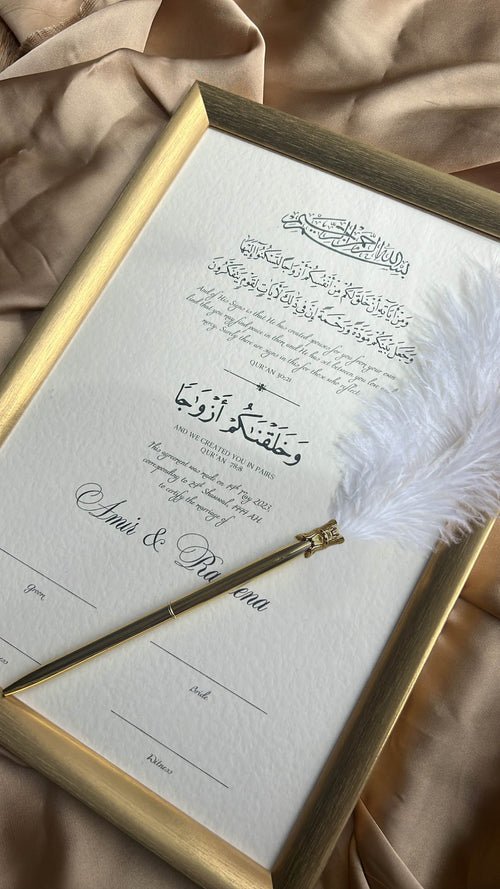 بسم الله الرحمن الرحيم
وَمِنْ آيَاتِهِ أَنْ خَلَقَ لَكُمْ مِنْ أَنْفُسِكُمْ أَزْوَاجًا لِتَسْكُنُوا إِلَيْهَا
وَجَعَلَ بَيْنَكُمْ مَوَدَّةً وَرَحْمَةً إِنَّ فِي ذَلِكَ لَآيَاتٍ لِقَوْمٍ يَتَفَكَّرُونَ
And of His Signs is that He has created spouses for you from your own
kind that you may find peace in them and He has set between you love and
mercy. Surely there are signs in this for those who reflect.
QUR'AN 30:21
وَخَلَقْنَٰكُمْ أَزْوَٰجًا
AND WE CREATED YOU IN PAIRS
QUR'AN 78:8
This agreement was made on 19th May 2023,
corresponding to 29th Shawwal, 1444 AH.
to certify the marriage of
Amir &
Groom
Bride
Witness